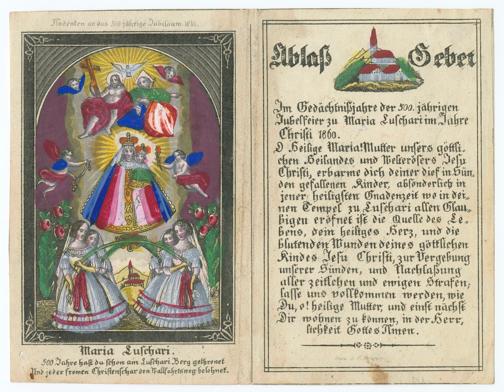 Andenken an das 500 jährige Jubiläum 1860.
Maria Luschari.
500 Jahre hast du schon am Luschari Berg gethronet
Und jeder fromen Christenschar den Wallfahrtsweg belohnet.
Ablaß Gebet
Im Gedächtnißjahre der 500. jährigen
Jubelfeier zu Maria Luschari im Jahre
Christi 1860.
O Heilige Maria! Mutter unsers göttli-
chen Heilandes und Welterlösers Jesu
Christi, erbarme dich deiner dief in Sün
den gefallenen Kinder, absonderlich in
jener heiligsten Gnadenzeit wo in dei
nen Tempel zu Luschari allen Glau
bigen eröfnet ist die Quelle des Le-
bens, dein heiliges Herz, und die
blutenden Wunden deines göttlichen
Kindes Jesu Christi, zur Vergebung
unserer Sünden, und Nachlassung
aller zeitlichen und ewigen Strafen;
lasse uns vollkommen werden, wie
Du, o! heilige Mutter, und einst nächst
Dir wohnen zu können, in der Herr,
lichkeit Gottes Amen.